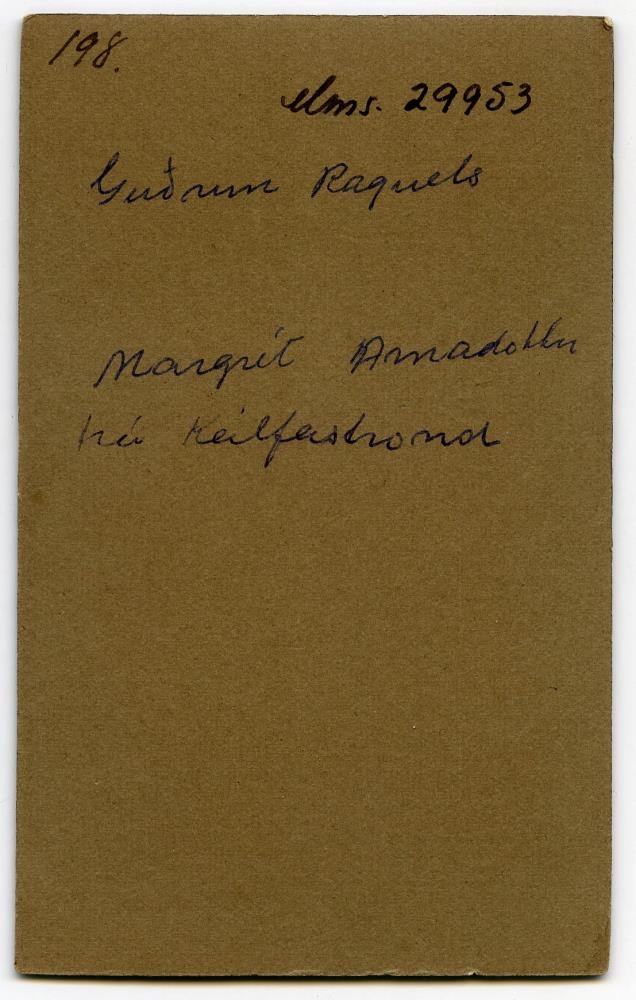 198.
elms. 29953
Guðrun Raquels
Margrét Arnadottir
frá Kálfaströnd